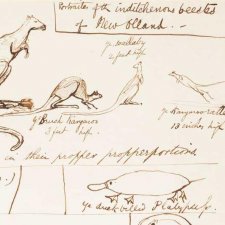 Portraites of the inditchenous beestes
of New Olland.—
ye wallaby
2 feet high
ye Bush Kangaroo
3 feet high.
ye Kangaroo ratte
13 inches high
in their propper propperportions
ye duck billed Platypus